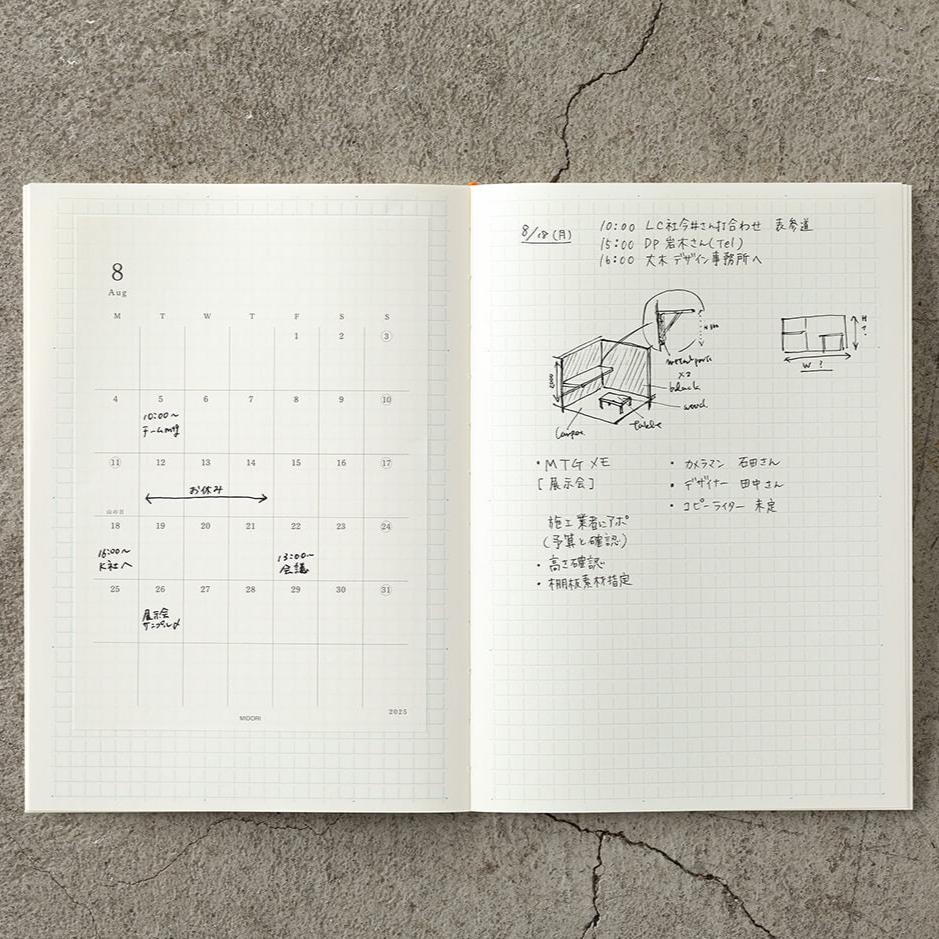 8
Aug
M T W T F S S
1 2 3
4 5 6 7 8 9 10
10:00〜
チームmtg
11 12 13 14 15 16 17
お休み
山の日
18 19 20 21 22 23 24
16:00〜
K社へ
13:00〜
会議
25 26 27 28 29 30 31
展示会
サンプル〆
2025
MIDORI
8/18(月)
10:00 LC社今井さん打合わせ 表参道
15:00 DP 岩木さん(Tel)
16:00 大木デザイン事務所へ
metal parts
×2
black
wood
table
H?
W ?
・MTGメモ
[展示会]
施工業者にアポ
(予算と確認)
・高さ確認
・棚板素材指定
・カメラマン 石田さん
・デザイナー 田中さん
・コピーライター 未定